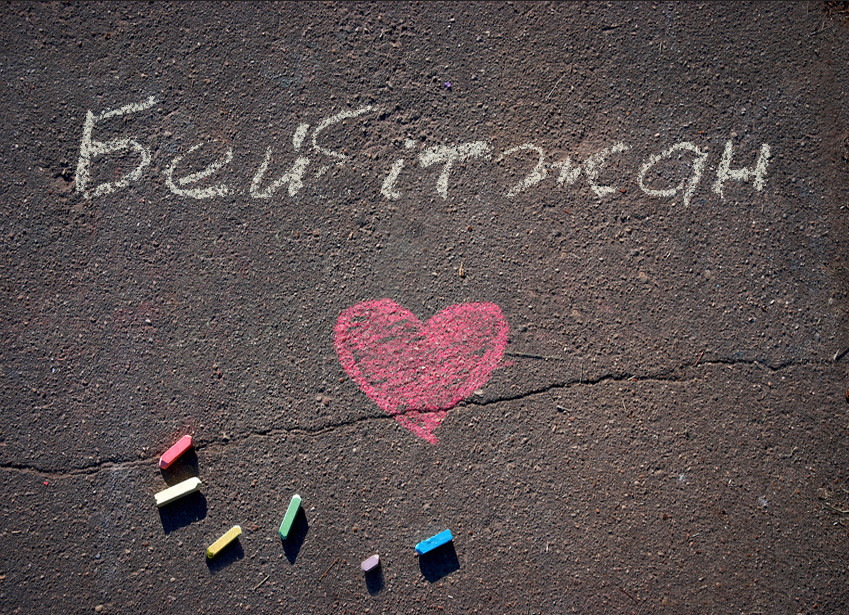 Бейбітжан